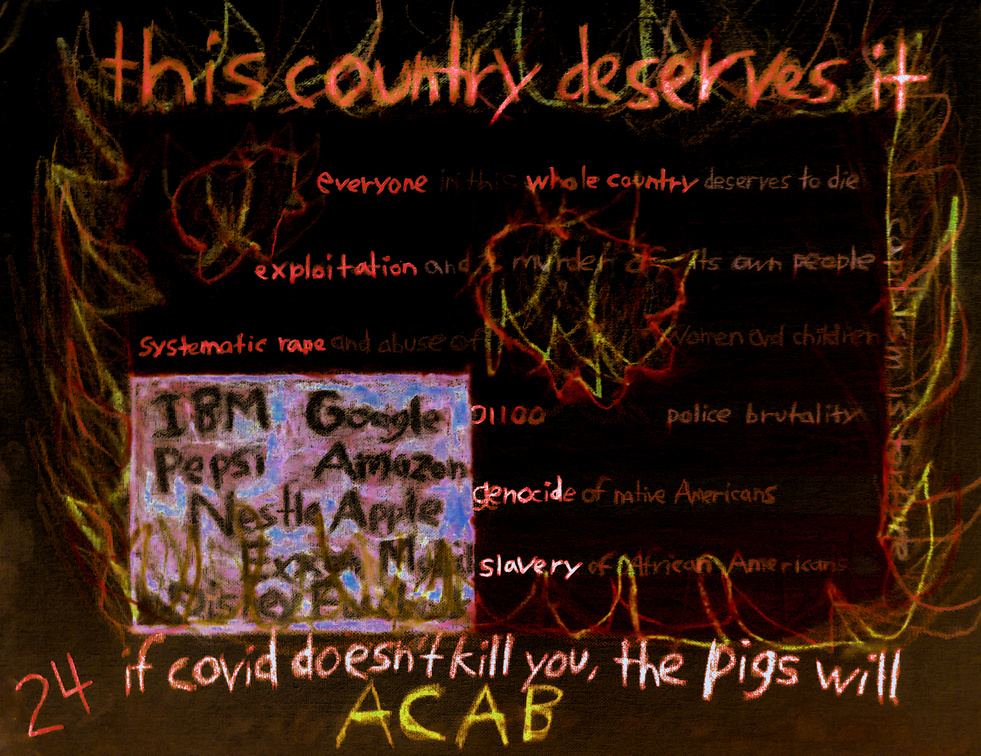 this country deserves it
everyone in this whole country deserves to die
exploitation and murder of its own people
systematic rape and abuse of women and children
IBM Google
Pepsi Amazon
Nestle Apple
Exxon Mobil
01100 police brutality
genocide of native Americans
slavery of African Americans
capitalism is
if covid doesn't kill you, the pigs will
24
ACAB